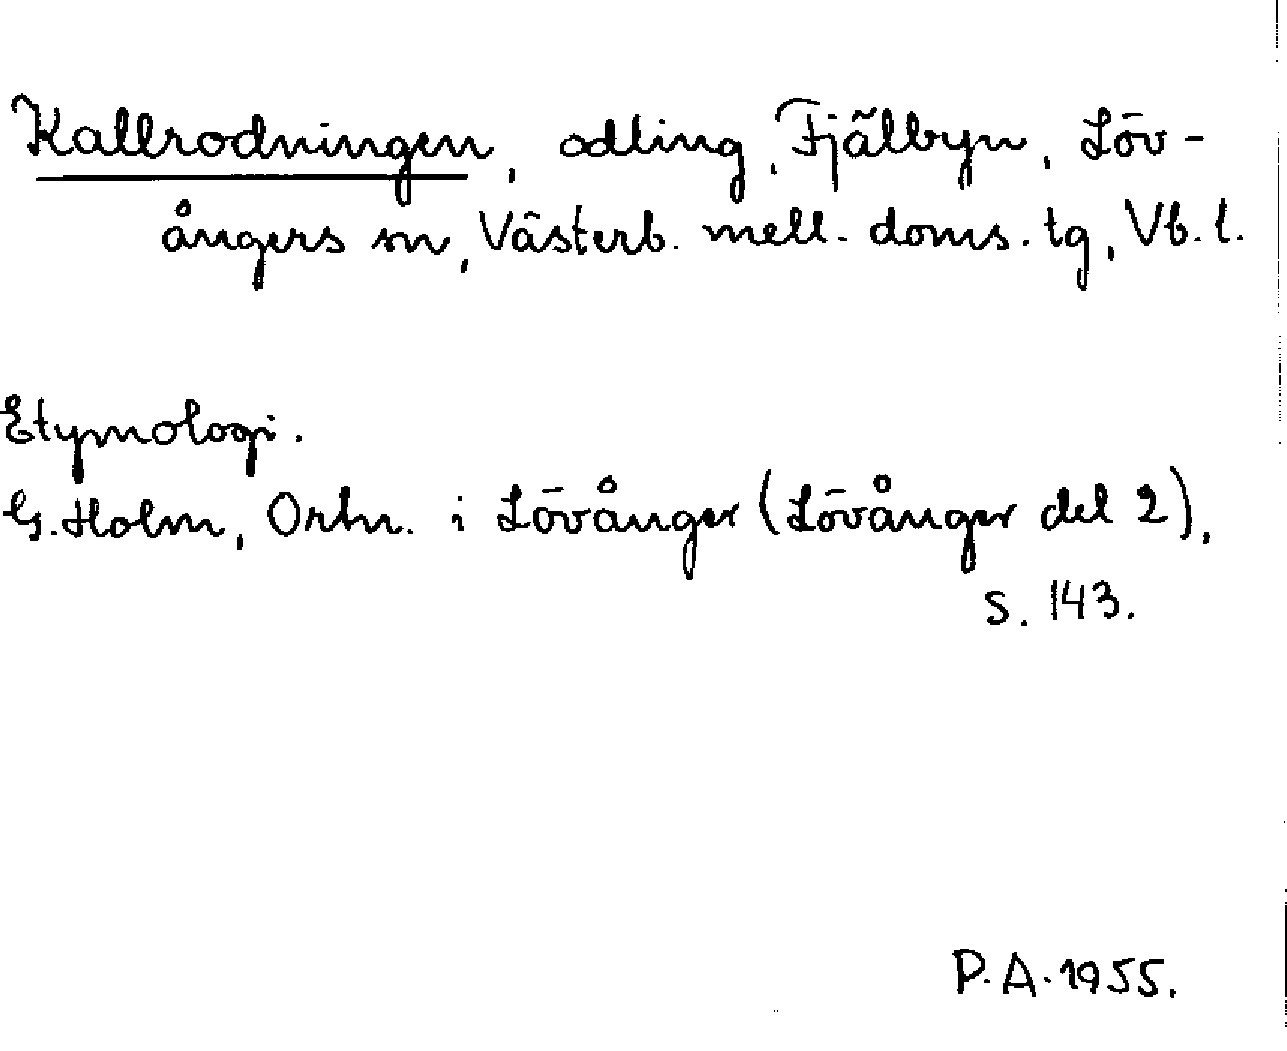 Kallrodningen, odling, Fjälbyn, Löv-
ångers sn, Västerb. mell. doms. tg, Vb. l.
Etymologi.
G. Holm, Ortn. i Lövånger (Lövånger del 2),
s. 143.
P. A. 1955.